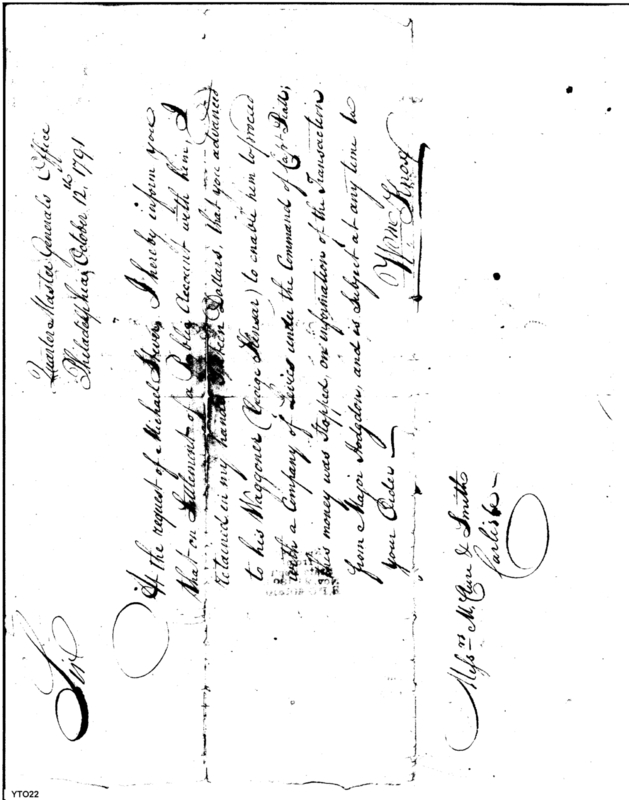 Quarter Master Generals Office
Philadelphia, October 12th, 1791
Sir
At the request of Michael I hereby inform you
that on Settlement of a Public Account with him, I
retained in my hands Dollars, that you advanced
to his Waggoner (George ) to enable him to proceed
with a Company of Levies under the Command of Capt Piatt;
this money was stopped, on information of the Transaction
from Major Hodgdon, and is Subject at any time to
your Order —
Wm Knox
Messrs McClure & Smith
Carlisle —
YTO22